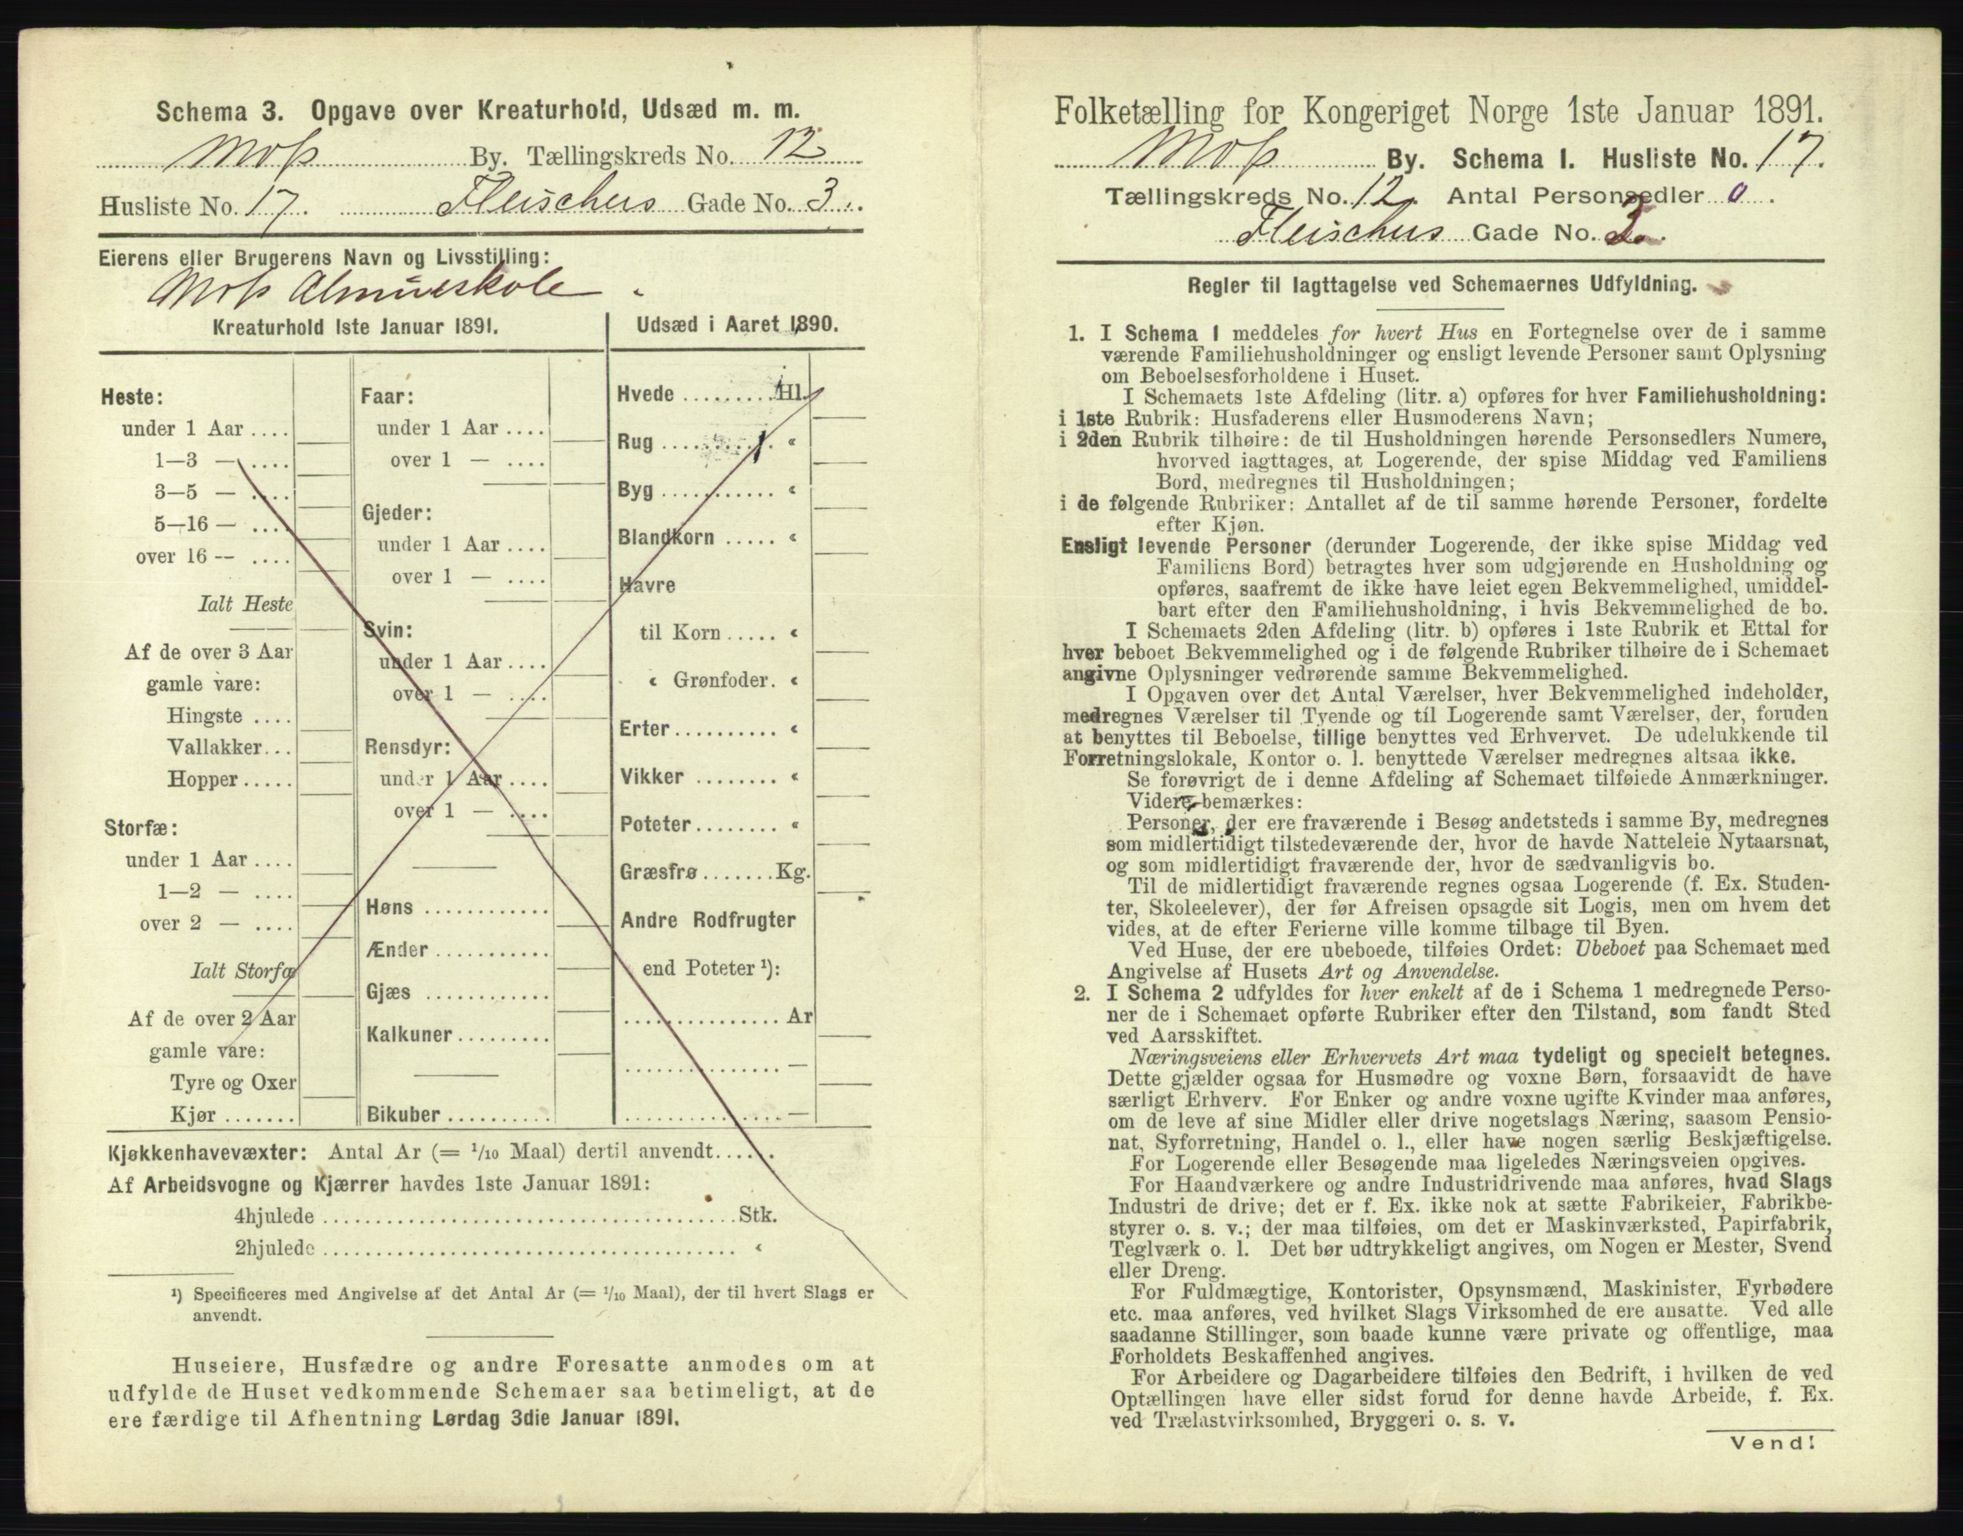 Schema 3. Opgave over Kreaturhold, Udsæd m. m.
Moss By. Tællingskreds No. 12
Husliste No. 17. Fleischers Gade No. 3.
Eierens eller Brugerens Navn og Livsstilling:
Moss Almueskole.
Kreaturhold 1ste Januar 1891.
Heste:
under 1 Aar ....
1—3 — ....
3—5 — ....
5—16 — ....
over 16 — ....
Ialt Heste
Af de over 3 Aar
gamle vare:
Hingste ....
Vallakker...
Hopper.....
Storfæ:
under 1 Aar ....
1—2 — ....
over 2 — ....
Ialt Storfæ
Af de over 2 Aar
gamle vare:
Tyre og Oxer
Kjør .......
Faar:
under 1 Aar ....
over 1 — ....
Gjeder:
under 1 Aar ....
over 1 — ....
Svin:
under 1 Aar....
over 1 — ....
Rensdyr:
under 1 Aar ....
over 1 — ....
Høns ............
Ænder ...........
Gjæs ............
Kalkuner .........
Bikuber ..........
Udsæd i Aaret 1890.
Hvede .........Hl.
Rug ........... “
Byg ........... “
Blandkorn ..... “
Havre
til Korn ..... “
“ Grønfoder. “
Erter .......... “
Vikker ........ “
Poteter ........ “
Græsfrø .......Kg.
Andre Rodfrugter
end Poteter ¹):
............... Ar
............... —
............... —
Kjøkkenhavevæxter: Antal Ar (= 1/10 Maal) dertil anvendt......
Af Arbeidsvogne og Kjærrer havdes 1ste Januar 1891:
4hjulede ........................................Stk.
2hjulede ........................................ “
¹) Specificeres med Angivelse af det Antal Ar (= 1/10 Maal), der til hvert Slags er
anvendt.
Huseiere, Husfædre og andre Foresatte anmodes om at
udfylde de Huset vedkommende Schemaer saa betimeligt, at de
ere færdige til Afhentning Lørdag 3die Januar 1891.
Folketælling for Kongeriget Norge 1ste Januar 1891.
Moss By. Schema 1. Husliste No. 17.
Tællingskreds No. 12. Antal Personsedler 0.
Fleischers Gade No. 3.
Regler til Iagttagelse ved Schemaernes Udfyldning.
1. I Schema 1 meddeles for hvert Hus en Fortegnelse over de i samme
værende Familiehusholdninger og ensligt levende Personer samt Oplysning
om Beboelsesforholdene i Huset.
I Schemaets 1ste Afdeling (litr. a) opføres for hver Familiehusholdning:
i 1ste Rubrik: Husfaderens eller Husmoderens Navn;
i 2den Rubrik tilhøire: de til Husholdningen hørende Personsedlers Numere,
hvorved iagttages, at Logerende, der spise Middag ved Familiens
Bord, medregnes til Husholdningen;
i de følgende Rubriker: Antallet af de til samme hørende Personer, fordelte
efter Kjøn.
Ensligt levende Personer (derunder Logerende, der ikke spise Middag ved
Familiens Bord) betragtes hver som udgjørende en Husholdning og
opføres, saafremt de ikke have leiet egen Bekvemmelighed, umiddel-
bart efter den Familiehusholdning, i hvis Bekvemmelighed de bo.
I Schemaets 2den Afdeling (litr. b) opføres i 1ste Rubrik et Ettal for
hver beboet Bekvemmelighed og i de følgende Rubriker tilhøire de i Schemaet
angivne Oplysninger vedrørende samme Bekvemmelighed.
I Opgaven over det Antal Værelser, hver Bekvemmelighed indeholder,
medregnes Værelser til Tyende og til Logerende samt Værelser, der, foruden
at benyttes til Beboelse, tillige benyttes ved Erhvervet. De udelukkende til
Forretningslokale, Kontor o. l. benyttede Værelser medregnes altsaa ikke.
Se forøvrigt de i denne Afdeling af Schemaet tilføiede Anmærkninger.
Videre bemærkes:
Personer, der ere fraværende i Besøg andetsteds i samme By, medregnes
som midlertidigt tilstedeværende der, hvor de havde Natteleie Nytaarsnat,
og som midlertidigt fraværende der, hvor de sædvanligvis bo.
Til de midlertidigt fraværende regnes ogsaa Logerende (f. Ex. Studen-
ter, Skoleelever), der før Afreisen opsagde sit Logis, men om hvem det
vides, at de efter Ferierne ville komme tilbage til Byen.
Ved Huse, der ere ubeboede, tilføies Ordet: Ubeboet paa Schemaet med
Angivelse af Husets Art og Anvendelse.
2. I Schema 2 udfyldes for hver enkelt af de i Schema 1 medregnede Perso-
ner de i Schemaet opførte Rubriker efter den Tilstand, som fandt Sted
ved Aarsskiftet.
Næringsveiens eller Erhvervets Art maa tydeligt og specielt betegnes.
Dette gjælder ogsaa for Husmødre og voxne Børn, forsaavidt de have
særligt Erhverv. For Enker og andre voxne ugifte Kvinder maa anføres,
om de leve af sine Midler eller drive nogetslags Næring, saasom Pensio-
nat, Syforretning, Handel o. l., eller have nogen særlig Beskjæftigelse.
For Logerende eller Besøgende maa ligeledes Næringsveien opgives.
For Haandværkere og andre Industridrivende maa anføres, hvad Slags
Industri de drive; det er f. Ex. ikke nok at sætte Fabrikeier, Fabrikbe-
styrer o. s. v.; der maa tilføies, om det er Maskinværksted, Papirfabrik,
Teglværk o. l. Det bør udtrykkeligt angives, om Nogen er Mester, Svend
eller Dreng.
For Fuldmægtige, Kontorister, Opsynsmænd, Maskinister, Fyrbødere
etc. maa anføres, ved hvilket Slags Virksomhed de ere ansatte. Ved alle
saadanne Stillinger, som baade kunne være private og offentlige, maa
Forholdets Beskaffenhed angives.
For Arbeidere og Dagarbeidere tilføies den Bedrift, i hvilken de ved
Optællingen have eller sidst forud for denne havde Arbeide, f. Ex.
ved Trælastvirksomhed, Bryggeri o. s. v.
Vend!